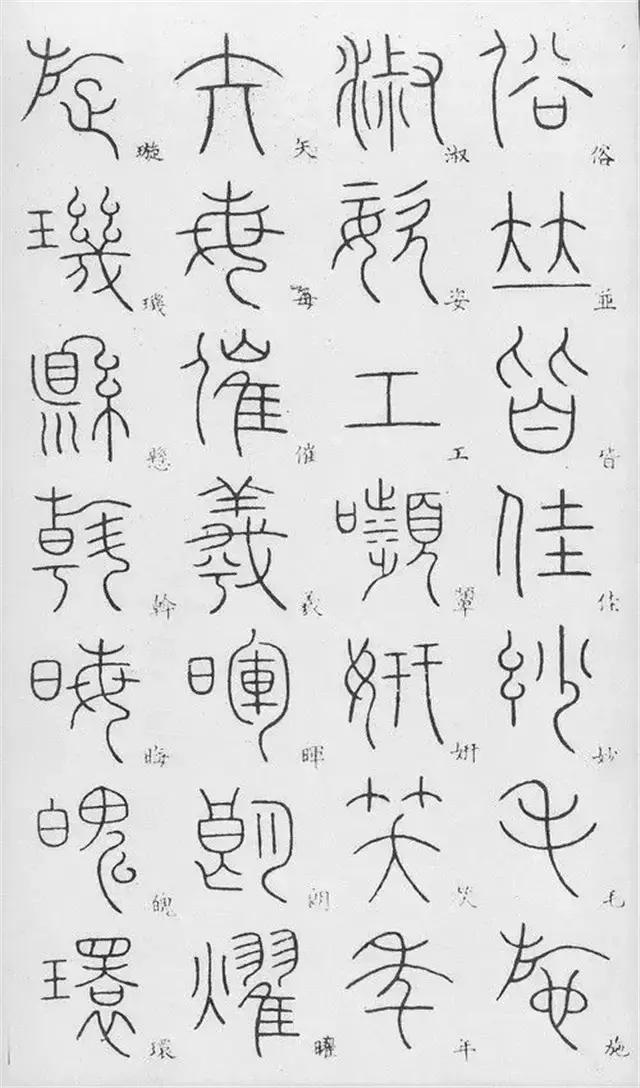 俗並皆佳妙毛施
淑姿工顰妍笑年
矢每催羲暉朗曜
璇璣懸斡晦魄環